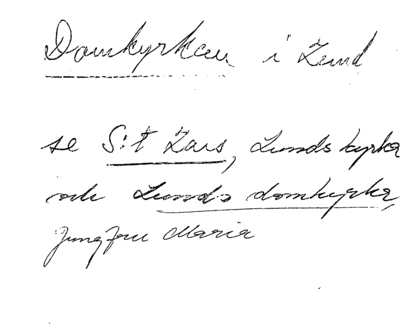 Domkyrkan i Lund
se S:t Lars, Lunds kyrka
och Lunds domkyrka,
Jungfru Maria